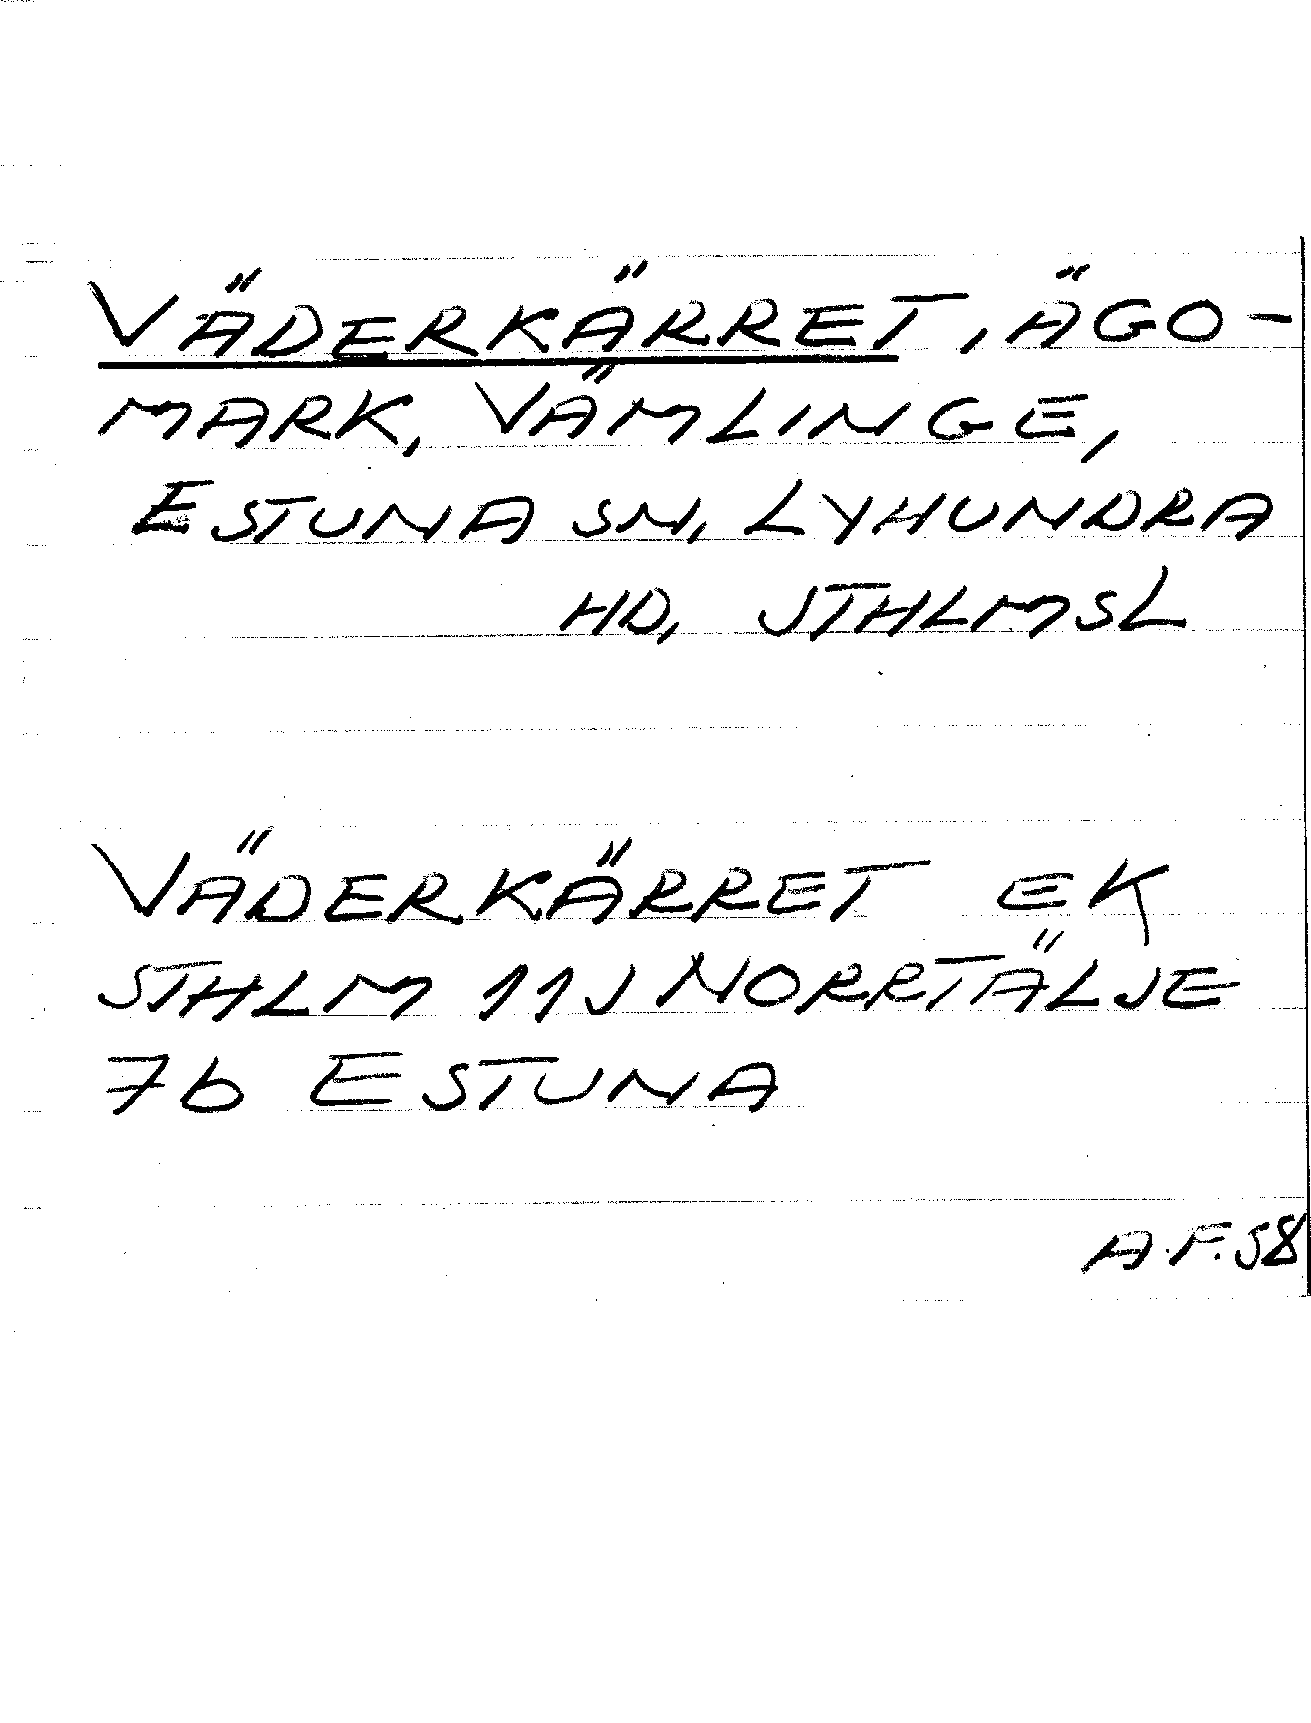 VÄDERKÄRRET, ÄGO-
MARK, VÄMLINGE,
ESTUNA SN, LYHUNDRA
HD, STHLMSL
VÄDERKÄRRET EK
STHLM 11J NORRTÄLJE
7b ESTUNA
A.F.58